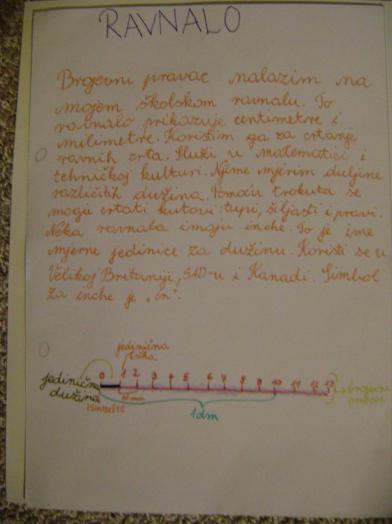 RAVNALO
Brojevni pravac nalazim na
mojem školskom ravnalu. To
ravnalo prikazuje centimetre i
milimetre. Koristim ga za crtanje
ravnih crta. Služi u matematici i
tehničkoj kulturi. Njime mjerim duljine
različitih dužina. Pomoću trokuta se
mogu crtati kutovi: tupi, šiljasti i pravi.
Neka ravnala imaju inche. To je ime
mjerne jedinice za dužinu. Koristi se u
Velikoj Britaniji, SAD-u i Kanadi. Simbol
za inche je „in“.
jedinična
točka
0 1 2 3 4 5 6 7 8 9 10 11 12 13
jedinična
dužina
ishodište
brojevni
pravac
1dm